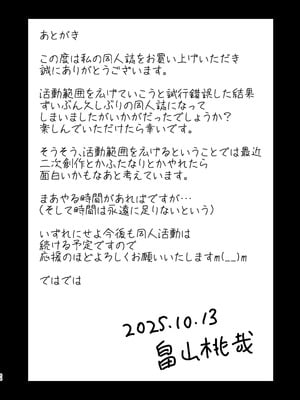 あとがき
この度は私の同人誌をお買い上げいただき
誠にありがとうございます。
活動範囲を広げていこうと試行錯誤した結果
ずいぶん久しぶりの同人誌になって
しまいましたがいかがだったでしょうか?
楽しんでいただけたら幸いです。
そうそう、活動範囲を広げるということでは最近
二次創作とかふたなりとかやれたら
面白いかもなあと考えています。
まあやる時間があればですが…
(そして時間は永遠に足りないという)
いずれにせよ今後も同人活動は
続ける予定ですので
応援のほどよろしくお願いいたしますm(__)m
ではでは
2025.10.13
畠山桃哉